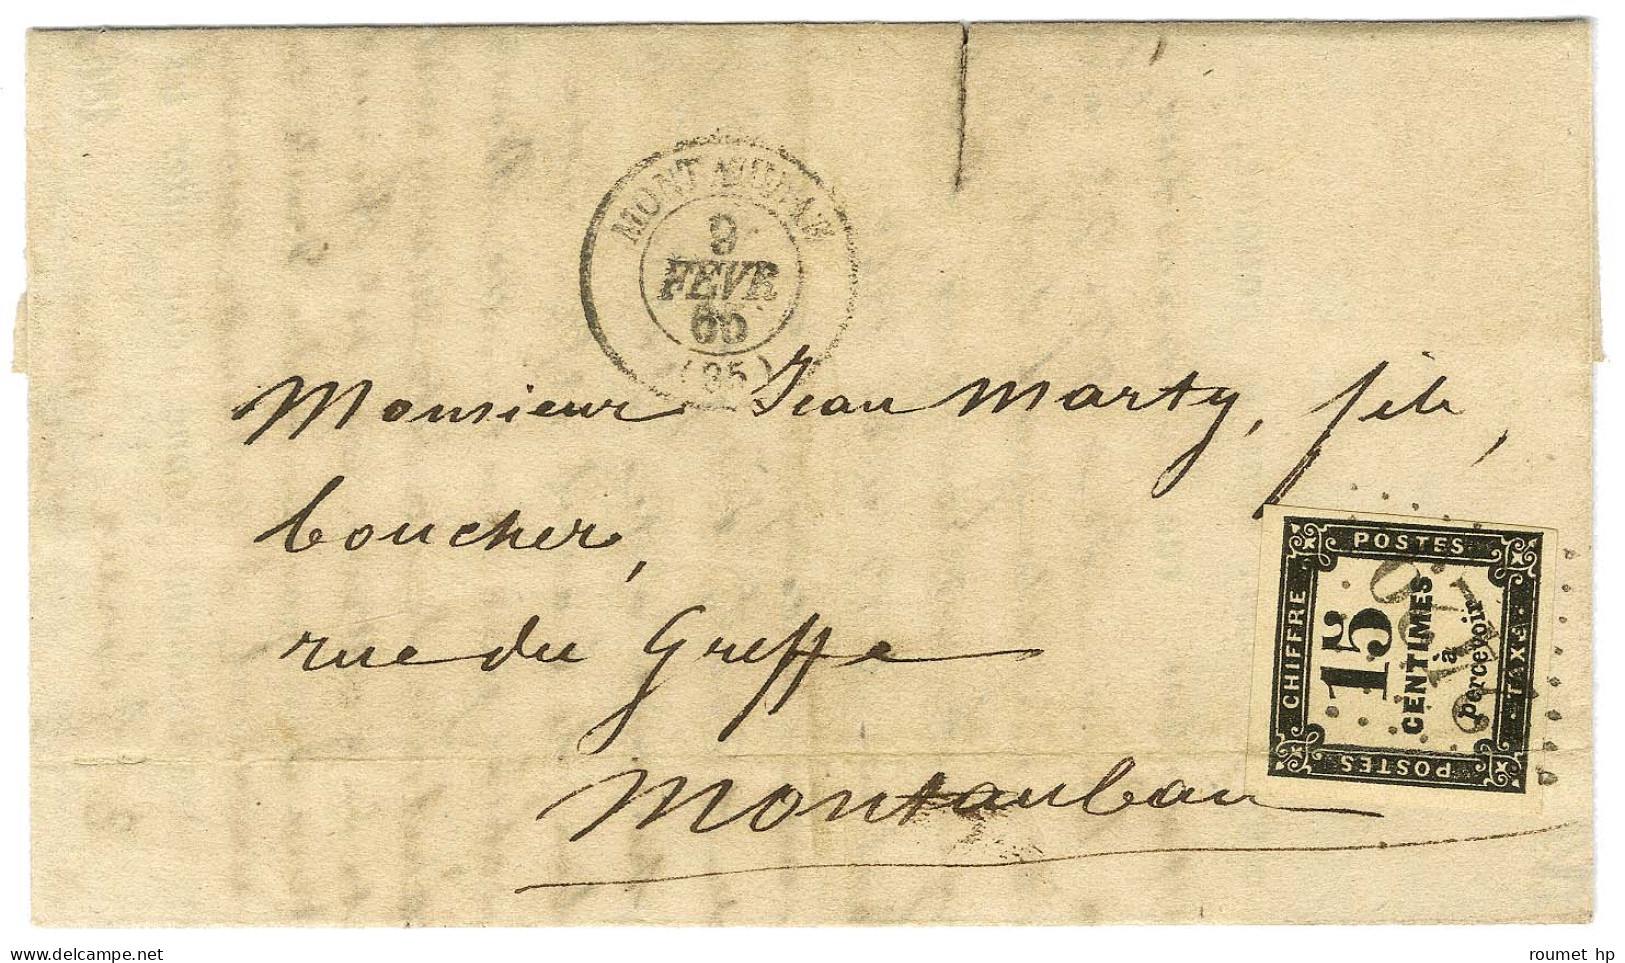 MONTAUBAN
9
FEVR
65
Monsieur Jean Marty, fils,
boucher,
rue du Greffe
Montauban
POSTES
CHIFFRE
15
CENTIMES
à
percevoir
TAXE
POSTES
roumet hp